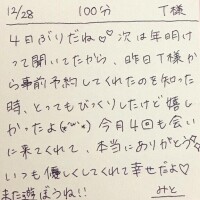 12/28 100分 T様
4日ぶりだね♡♡ 次は年明け
って聞いてたから、昨日T様か
ら事前予約してくれたのを知った
時、とってもびっくりしたけど嬉し
かったよ(*´꒳`*) 今月4回も会い
に来てくれて、本当にありがとう♡
いつも優しくしてくれて幸せだよ♡
また遊ぼうね!! みと